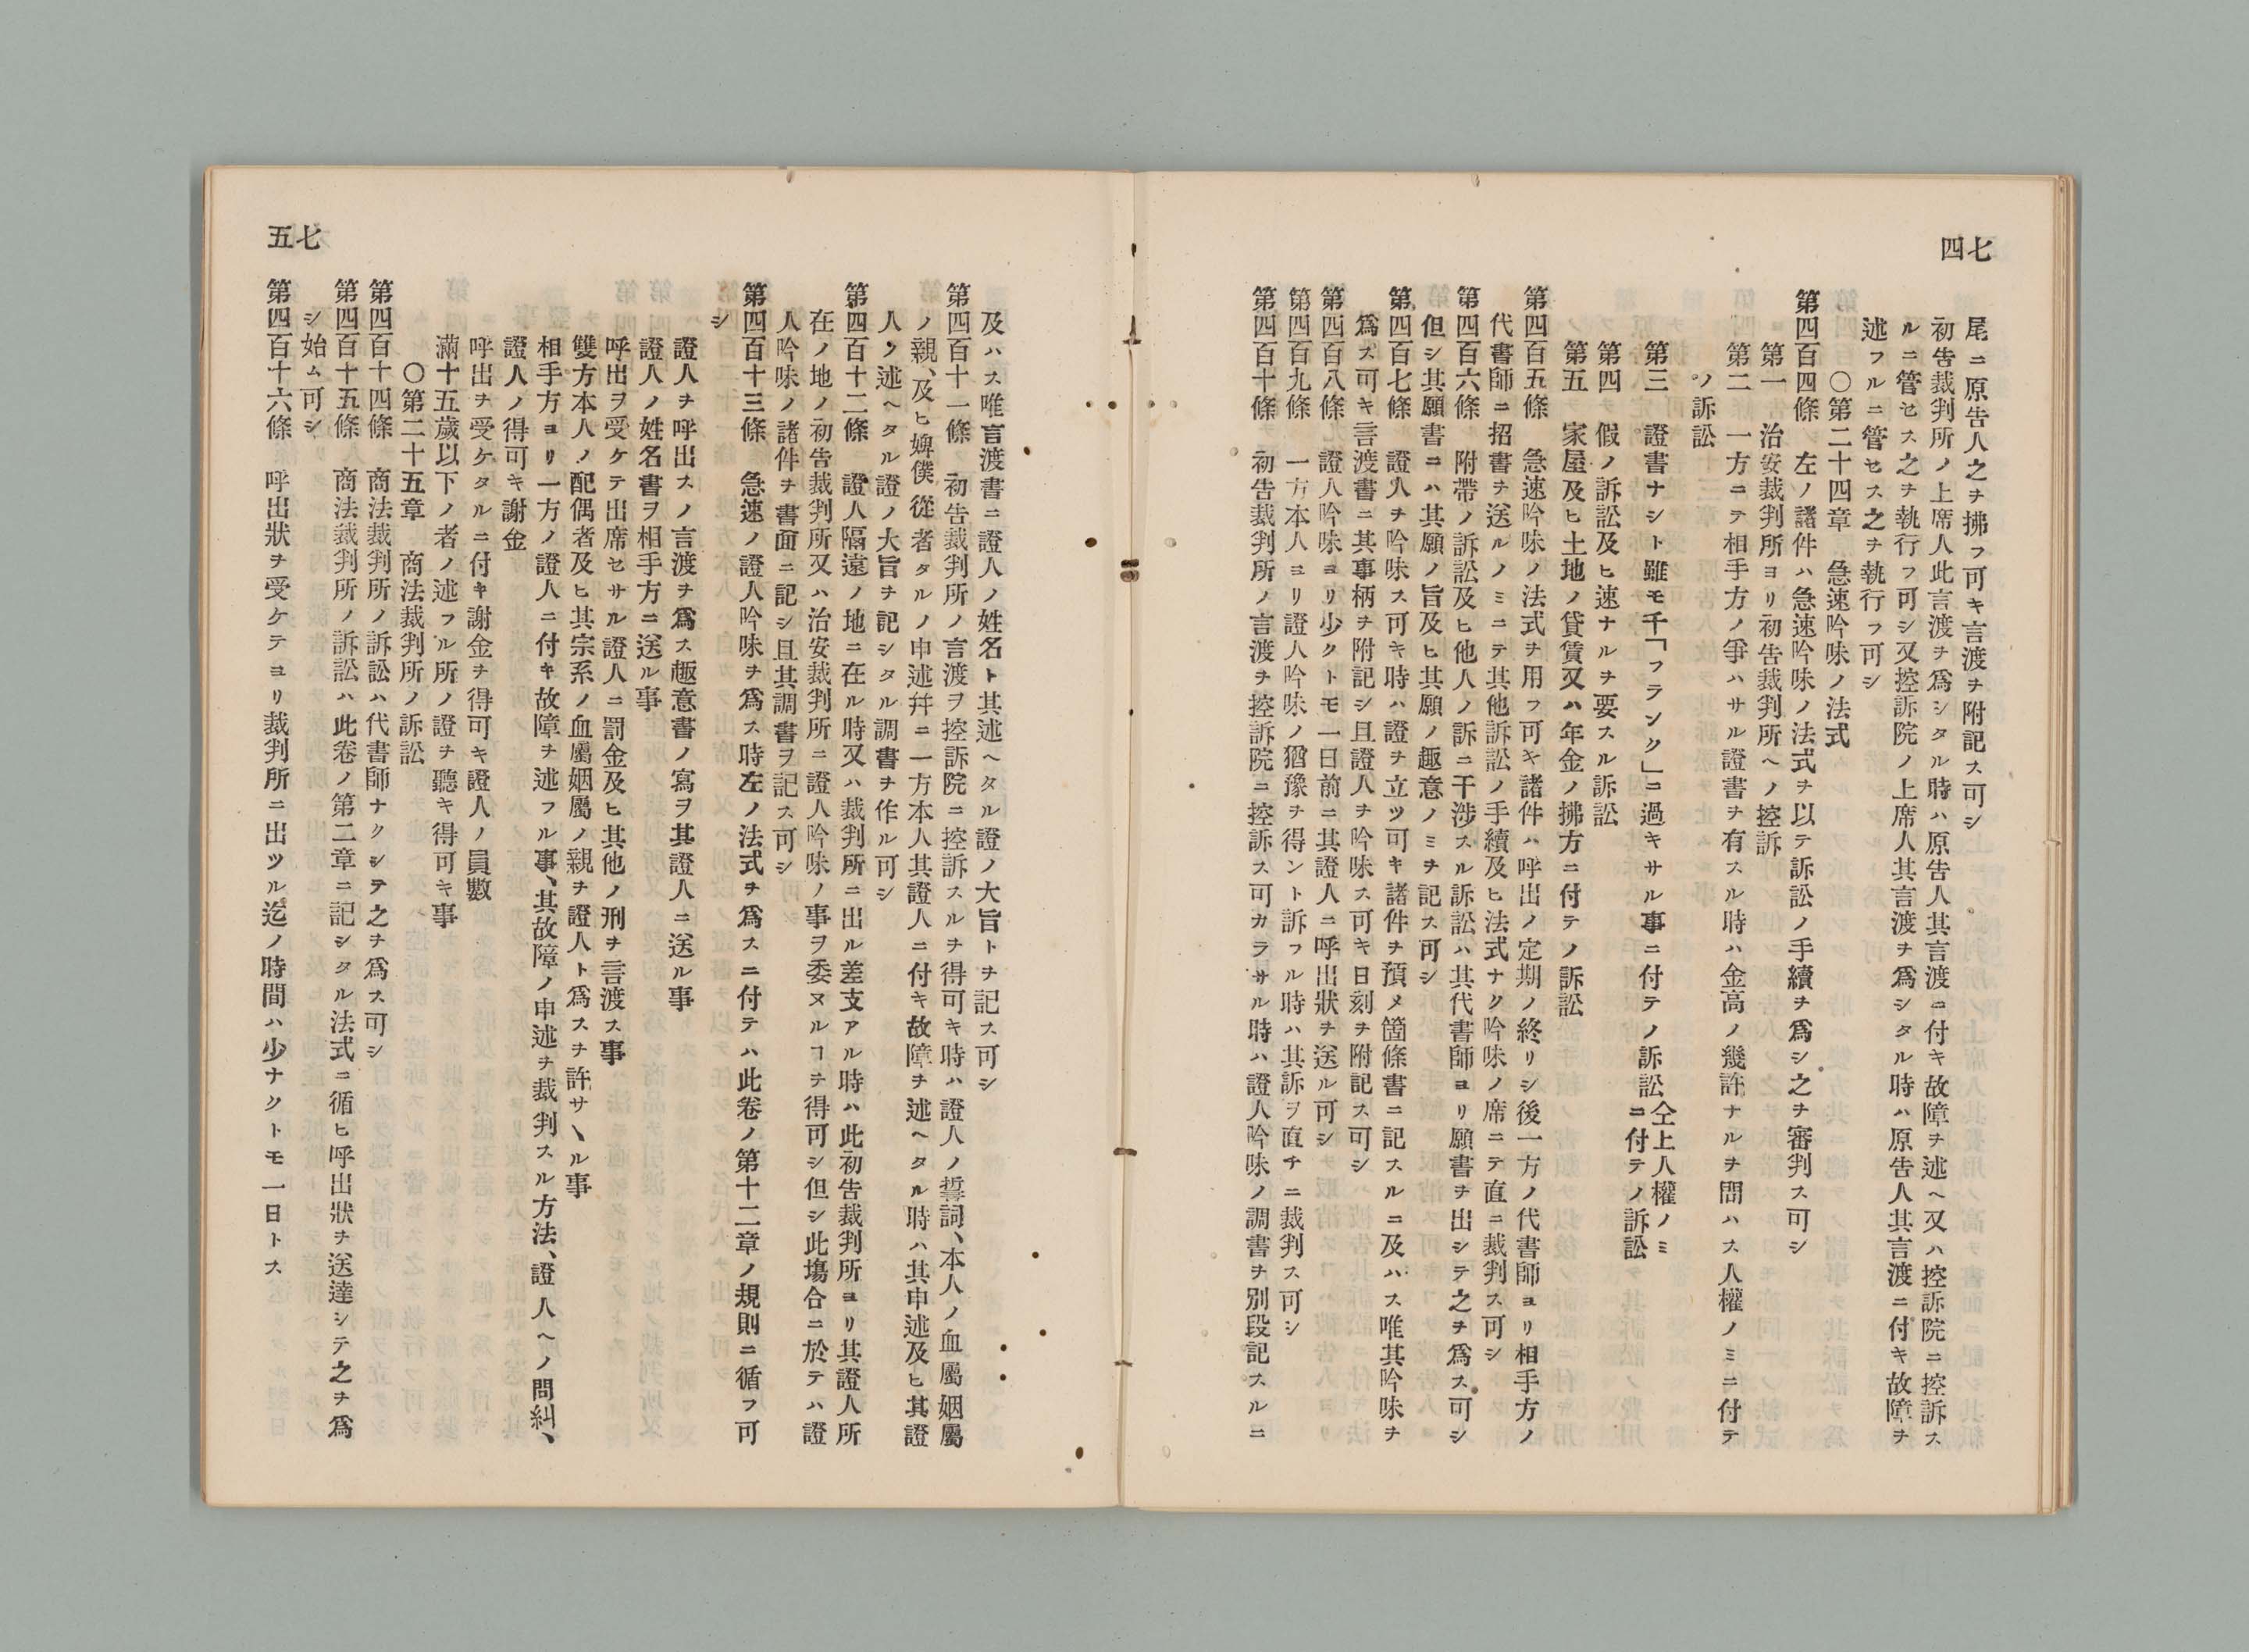 七四
尾ニ原告人之ヲ拂フ可キ言渡ヲ附記ス可シ
初告裁判所ノ上席人此言渡ヲ爲シタル時ハ原告人其言渡ニ付キ故障ヲ述ヘ又ハ控訴院ニ控訴ス
ルニ管セス之ヲ執行フ可シ又控訴院ノ上席人其言渡ヲ爲シタル時ハ原告人其言渡ニ付キ故障ヲ
述フルニ管セス之ヲ執行フ可シ
〇第二十四章 急速吟味ノ法式
第四百四條 左ノ諸件ハ急速吟味ノ法式ヲ以テ訴訟ノ手續ヲ爲シ之ヲ審判ス可シ
第一 治安裁判所ヨリ初告裁判所ヘノ控訴
第二 一方ニテ相手方ノ爭ハサル證書ヲ有スル時ハ金高ノ幾許ナルヲ問ハス人權ノミニ付テ
ノ訴訟
第三 證書ナシト雖モ千「フランク」ニ過キサル事ニ付テノ訴訟仝上人權ノミニ付テノ訴訟
第四 假ノ訴訟及ヒ速ナルヲ要スル訴訟
第五 家屋及ヒ土地ノ貸賃又ハ年金ノ拂方ニ付テノ訴訟
第四百五條 急速吟味ノ法式ヲ用フ可キ諸件ハ呼出ノ定期ノ終リシ後一方ノ代書師ヨリ相手方ノ
代書師ニ招書ヲ送ルノミニテ其他訴訟ノ手續及ヒ法式ナク吟味ノ席ニテ直ニ裁判ス可シ
第四百六條 附帶ノ訴訟及ヒ他人ノ訴ニ干涉スル訴訟ハ其代書師ヨリ願書ヲ出シテ之ヲ爲ス可シ
但シ其願書ニハ其願ノ旨及ヒ其願ノ趣意ノミヲ記ス可シ
第四百七條 證人ヲ吟味ス可キ時ハ證ヲ立ツ可キ諸件ヲ預メ箇條書ニ記スルニ及ハス唯其吟味ヲ
爲ス可キ言渡書ニ其事柄ヲ附記シ且證人ヲ吟味ス可キ日刻ヲ附記ス可シ
第四百八條 證人吟味ヨリ少クトモ一日前ニ其證人ニ呼出狀ヲ送ル可シ
第四百九條 一方本人ヨリ證人吟味ノ猶豫ヲ得ント訴フル時ハ其訴ヲ直チニ裁判ス可シ
第四百十條 初告裁判所ノ言渡ヲ控訴院ニ控訴ス可カラサル時ハ證人吟味ノ調書ヲ別段記スルニ
七五
及ハス唯言渡書ニ證人ノ姓名ト其述ヘタル證ノ大旨トヲ記ス可シ
第四百十一條 初告裁判所ノ言渡ヲ控訴院ニ控訴スルヲ得可キ時ハ證人ノ誓詞、本人ノ血屬姻屬
ノ親、及ヒ婢僕從者タルノ申述幷ニ一方本人其證人ニ付キ故障ヲ述ヘタル時ハ其申述及ヒ其證
人ノ述ヘタル證ノ大旨ヲ記シタル調書ヲ作ル可シ
第四百十二條 證人隔遠ノ地ニ在ル時又ハ裁判所ニ出ル差支アル時ハ此初告裁判所ヨリ其證人所
在ノ地ノ初告裁判所又ハ治安裁判所ニ證人吟味ノ事ヲ委ヌルヿヲ得可シ但シ此塲合ニ於テハ證
人吟味ノ諸件ヲ書面ニ記シ且其調書ヲ記ス可シ
第四百十三條 急速ノ證人吟味ヲ爲ス時左ノ法式ヲ爲スニ付テハ此卷ノ第十二章ノ規則ニ循フ可
シ
證人ヲ呼出スノ言渡ヲ爲ス趣意書ノ寫ヲ其證人ニ送ル事
證人ノ姓名書ヲ相手方ニ送ル事
呼出ヲ受ケテ出席セサル證人ニ罰金及ヒ其他ノ刑ヲ言渡ス事
雙方本人ノ配偶者及ヒ其宗系ノ血屬姻屬ノ親ヲ證人ト爲スヲ許サヽル事
相手方ヨリ一方ノ證人ニ付キ故障ヲ述フル事、其故障ノ申述ヲ裁判スル方法、證人ヘノ問糾、
證人ノ得可キ謝金
呼出ヲ受ケタルニ付キ謝金ヲ得可キ證人ノ員數
滿十五歲以下ノ者ノ述フル所ノ證ヲ聽キ得可キ事
〇第二十五章 商法裁判所ノ訴訟
第四百十四條 商法裁判所ノ訴訟ハ代書師ナクシテ之ヲ爲ス可シ
第四百十五條 商法裁判所ノ訴訟ハ此卷ノ第二章ニ記シタル法式ニ循ヒ呼出狀ヲ送達シテ之ヲ爲
シ始ム可シ
第四百十六條 呼出狀ヲ受ケテヨリ裁判所ニ出ツル迄ノ時間ハ少ナクトモ一日トス